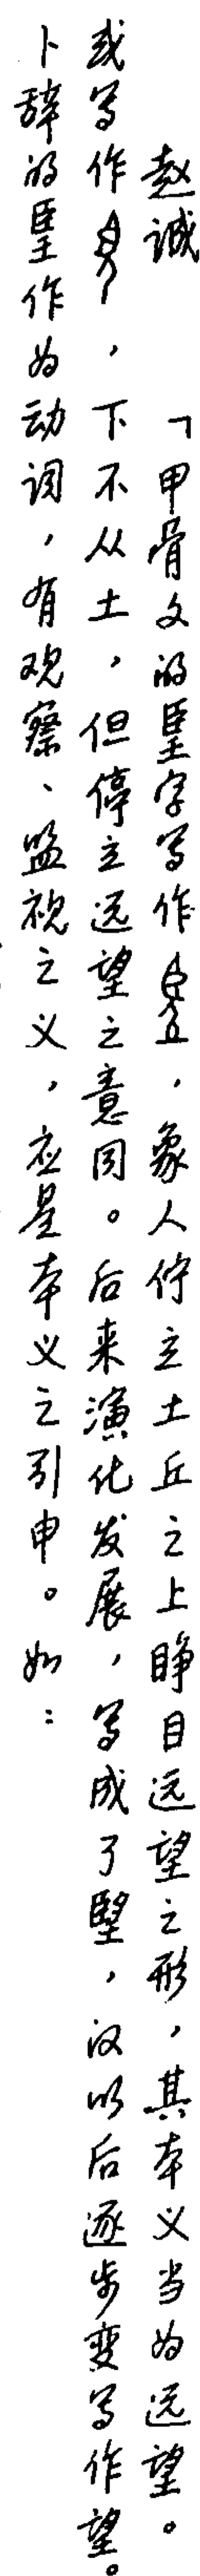 赵诚 「甲骨文的朢字写作，象人伫立土丘之上睁目远望之形，其本义当为远望。
或写作，下不从土，但停立远望之意同。后来演化发展，写成了朢，汉以后逐步变写作望。
卜辞的朢作为动词，有观察、监视之义，应是本义之引申。如：